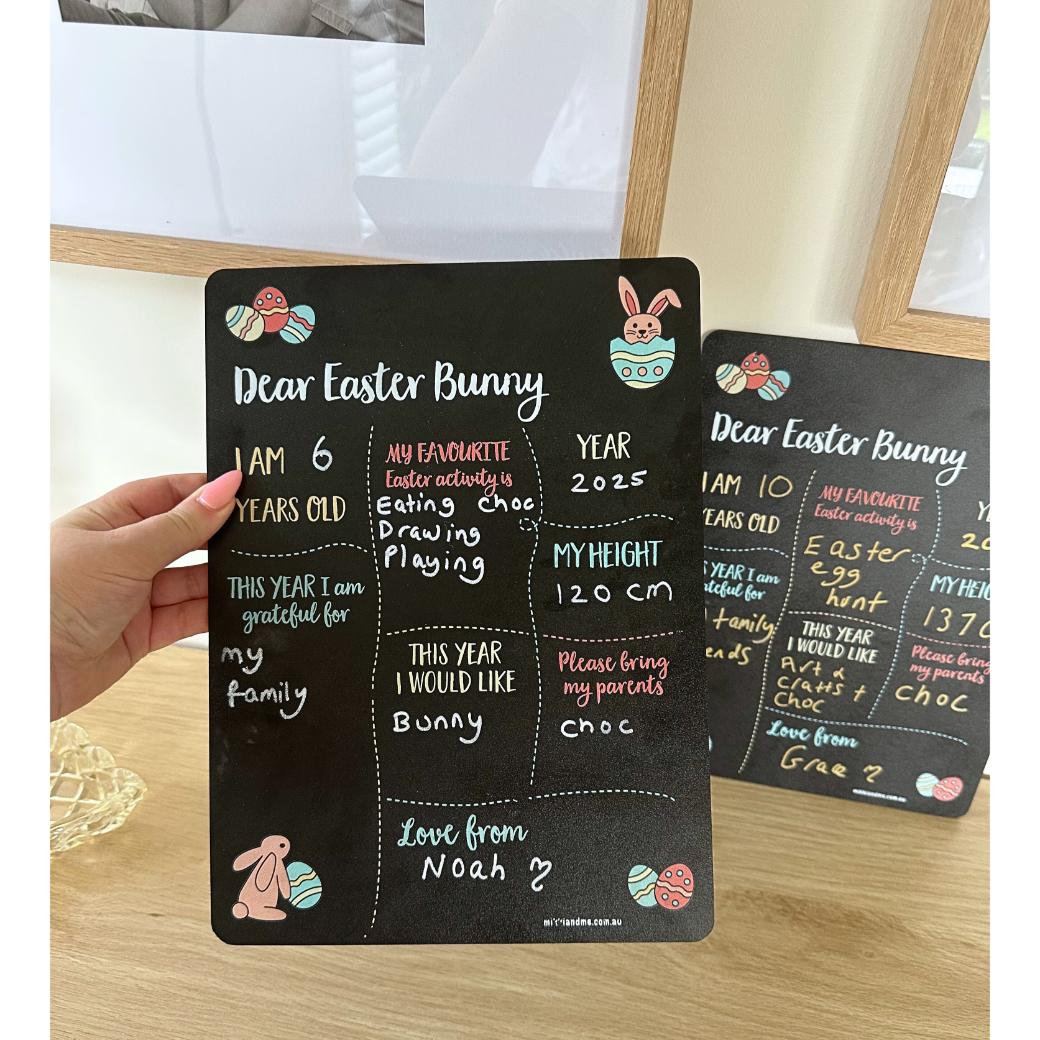 Dear Easter Bunny
I AM 6
YEARS OLD
THIS YEAR I am
grateful for
my
family
MY FAVOURITE
Easter activity is
Eating choc
Drawing
Playing
THIS YEAR
I WOULD LIKE
Bunny
YEAR
2025
MY HEIGHT
120 cm
Please bring
my parents
choc
Love from
Noah
Dear Easter Bunny
I AM 10
YEARS OLD
YEAR I am
family
MY FAVOURITE
Easter activity is
Easter
egg
hunt
THIS YEAR
I WOULD LIKE
Art &
Crafts +
Choc
137
Please bring
my parents
choc
Love from
Grace